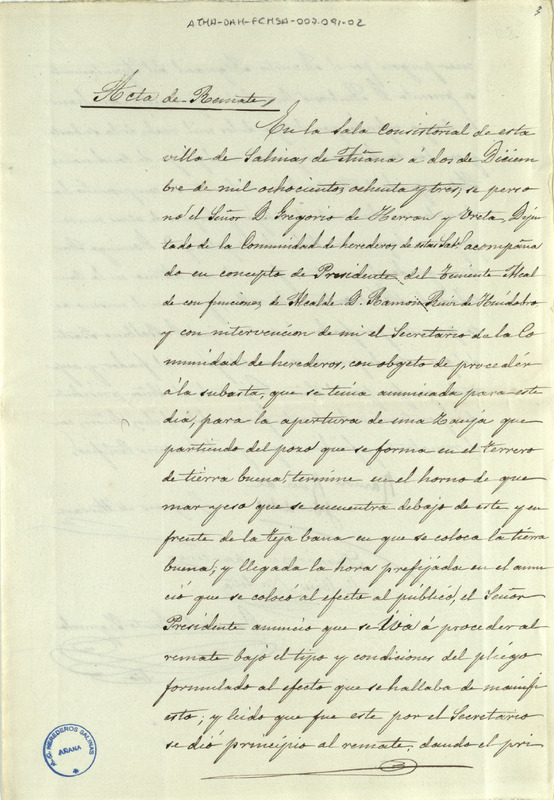 3
ATHA-DAH-FCHSA-007.091-02
Acta de Remate,
En la Sala Consistorial de esta
villa de Salinas de Añana á dos de Diciem
bre de mil ochocientos ochenta y tres, se perso
nó el Señor D. Gregorio de Herran y Ureta, Dipu
tado de la Comunidad de herederos de estas Sals. acompaña
do en concepto de Presidente del Teniente Alcal
de con funciones de Alcalde D. Ramon Ruiz de Huidobro
y con intervencion de mi el Secretario de la Co
munidad de herederos, con objeto de procedér
á la subasta, que se tenia anunciada para este
dia, para la apertura de una Zanja que
partiendo del pozo que se forma en el Terrero
de tierra buena, termine en el horno de que
mar yeso que se encuentra debajo de este y en
frente de la Teja bana en que se coloca la tierra
buena; y llegada la hora prefijada en el anun
cio que se colocó al efecto al público, el Señor
Presidente anunció que se iva á proceder al
remate bajo el tipo y condiciones del pliego
formulado al efecto que se hallaba de manifi
esto; y leido que fue este por el Secretario
se dió principio al remate, dando el pri
A.C. HEREDEROS SALINAS
AÑANA